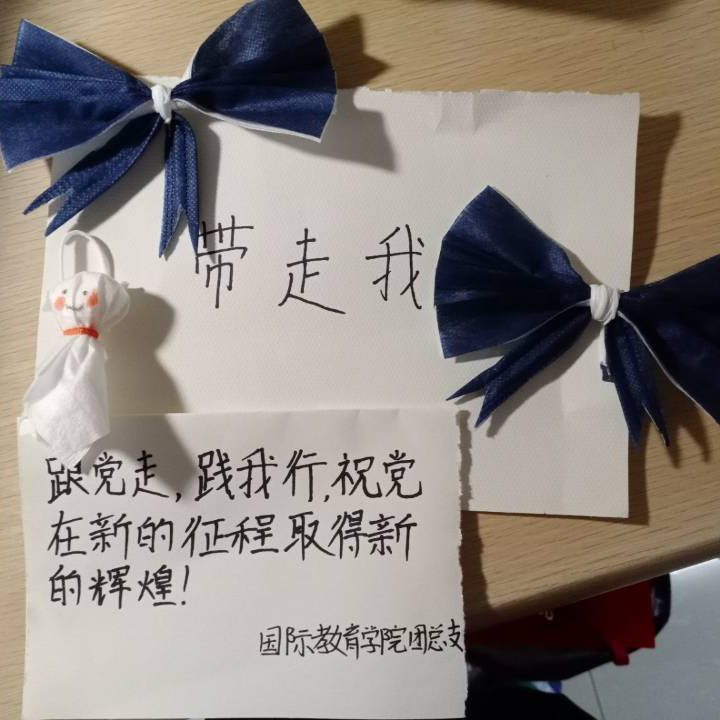 带走我
跟党走，践我行，祝党
在新的征程取得新
的辉煌！
国际教育学院团总支